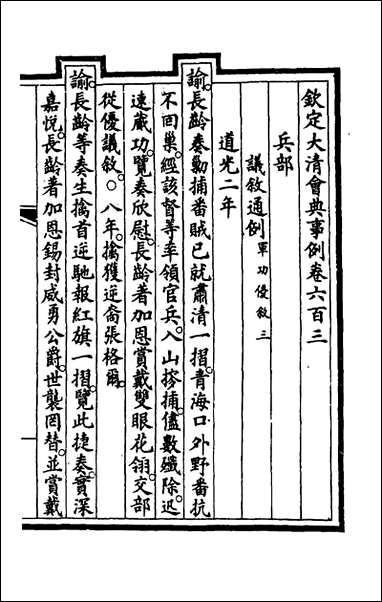 欽定大清會典事例卷六百三
兵部
議敘通例 軍功優敘三
道光二年
諭。長齡奏勦捕番賊已就肅清一摺。青海口外野番抗
不回巢。經該督等率領官兵。入山搜捕。儘數殲除。迅
速蕆功。覽奏欣慰。長齡著加恩賞戴雙眼花翎。交部
從優議敘。○八年。擒獲逆裔張格爾。
諭。長齡等奏生擒首逆馳報紅旗一摺。覽此捷奏。實深
嘉悅。長齡著加恩錫封威勇公爵。世襲罔替。並賞戴